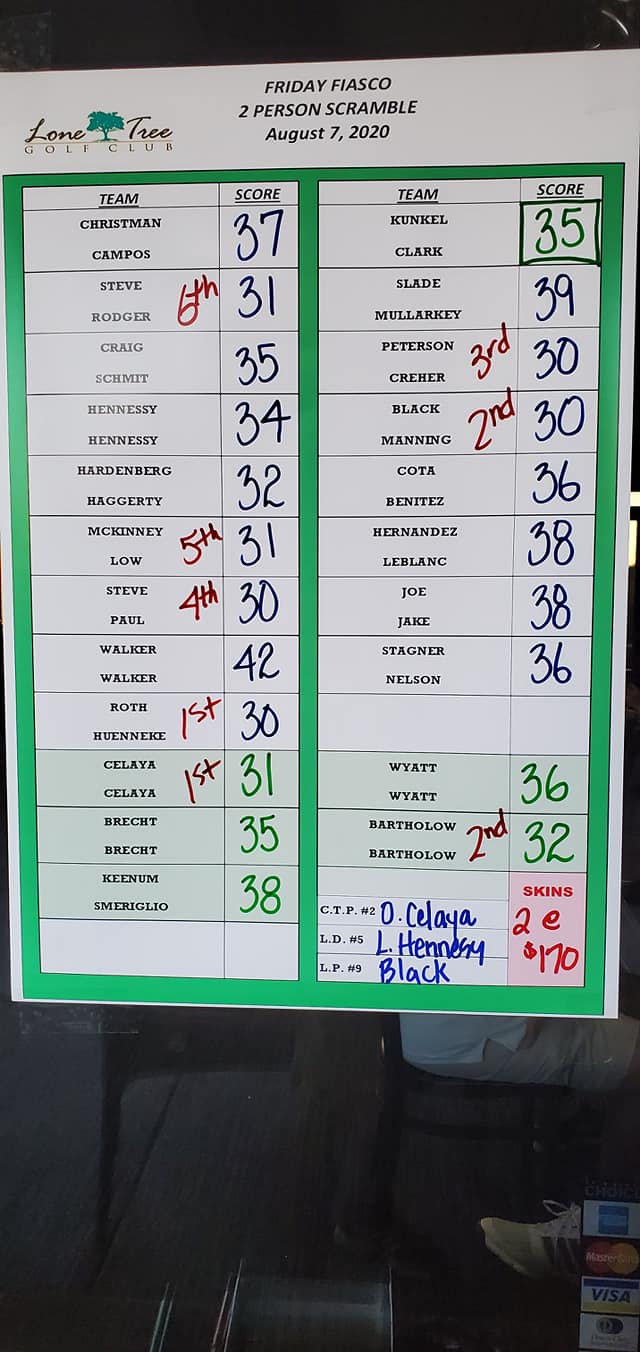 FRIDAY FIASCO
2 PERSON SCRAMBLE
August 7, 2020
Lone Tree
GOLF CLUB
TEAM SCORE
CHRISTMAN
CAMPOS
37
STEVE
RODGER
6th 31
CRAIG
SCHMIT
35
HENNESSY
HENNESSY
34
HARDENBERG
HAGGERTY
32
MCKINNEY
LOW
5th 31
STEVE
PAUL
4th 30
WALKER
WALKER
42
ROTH
HUENNEKE
1st 30
CELAYA
CELAYA
1st 31
BRECHT
BRECHT
35
KEENUM
SMERIGLIO
38
TEAM SCORE
KUNKEL
CLARK
35
SLADE
MULLARKEY
39
PETERSON
CREHER
3rd 30
BLACK
MANNING
2nd 30
COTA
BENITEZ
36
HERNANDEZ
LEBLANC
38
JOE
JAKE
38
STAGNER
NELSON
36
WYATT
WYATT
36
BARTHOLOW
BARTHOLOW
2nd 32
C.T.P. #2 O. Celaya
L.D. #5 L. Hennesy
L.P. #9 Black
SKINS
2 @
$170
MasterCard
VISA